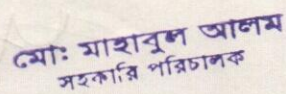 মোঃ মাহাবুল আলম
সহকারি পরিচালক